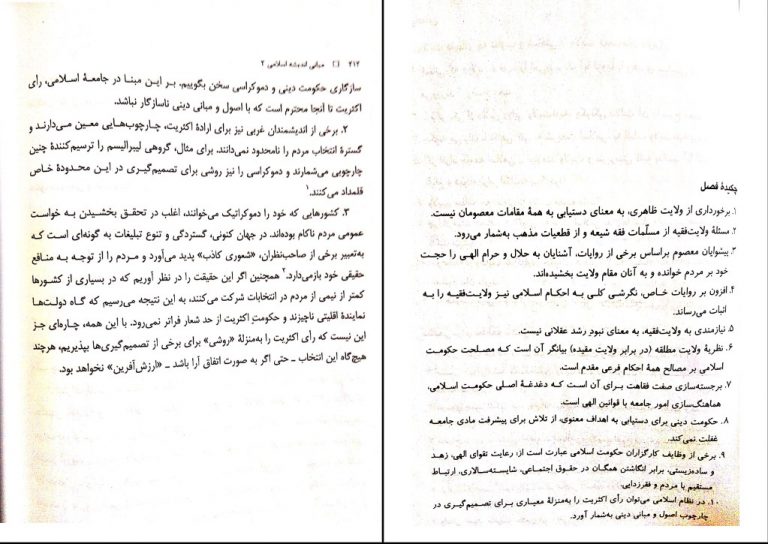 ۲۱۲ □ مبانی اندیشه اسلامی ۲
سازگاری حکومت دینی و دموکراسی سخن بگوییم. بر این مبنا در جامعهٔ اسلامی، رأی
اکثریت تا آنجا محترم است که با اصول و مبانی دینی ناسازگار نباشد.
۲. برخی از اندیشمندان غربی نیز برای ارادهٔ اکثریت، چارچوب‌هایی معین می‌دارند و
گسترهٔ انتخاب مردم را نامحدود نمی‌دانند. برای مثال، گروهی لیبرالیسم را ترسیم‌کنندهٔ چنین
چارچوبی می‌شمارند و دموکراسی را نیز روشی برای تصمیم‌گیری در این محدودهٔ خاص
قلمداد می‌کنند.۱
۳. کشورهایی که خود را دموکراتیک می‌خوانند، اغلب در تحقق بخشیدن به خواست
عمومی مردم ناکام بوده‌اند. در جهان کنونی، گستردگی و تنوع تبلیغات به گونه‌ای است که
به‌تعبیر برخی از صاحب‌نظران، «شعوری کاذب» پدید می‌آورد و مردم را از توجه به منافع
حقیقی خود بازمی‌دارد.۲ همچنین اگر این حقیقت را در نظر آوریم که در بسیاری از کشورها
کمتر از نیمی از مردم در انتخابات شرکت می‌کنند، به این نتیجه می‌رسیم که گاه دولت‌ها
نمایندهٔ اقلیتی ناچیزند و حکومت اکثریت از حد شعار فراتر نمی‌رود. با این همه، چاره‌ای جز
این نیست که رأی اکثریت را به‌منزلهٔ «روشی» برای برخی از تصمیم‌گیری‌ها بپذیریم، هرچند
هیچ‌گاه این انتخاب ـ حتی اگر به صورت اتفاق آرا باشد ـ «ارزش‌آفرین» نخواهد بود.
چکیدهٔ فصل
۱. برخورداری از ولایت ظاهری، به معنای دستیابی به همهٔ مقامات معصومان نیست.
۲. مسئلهٔ ولایت‌فقیه از مسلّمات فقه شیعه و از قطعیات مذهب به‌شمار می‌رود.
۳. پیشوایان معصوم براساس برخی از روایات، آشنایان به حلال و حرام الهی را حجت
خود بر مردم خوانده و به آنان مقام ولایت بخشیده‌اند.
۴. افزون بر روایات خاص، نگرشی کلی به احکام اسلامی نیز ولایت‌فقیه را به
اثبات می‌رساند.
۵. نیازمندی به ولایت‌فقیه، به معنای نبود رشد عقلانی نیست.
۶. نظریهٔ ولایت مطلقه (در برابر ولایت مقیده) بیانگر آن است که مصلحت حکومت
اسلامی بر مصالح همهٔ احکام فرعی مقدم است.
۷. برجسته‌سازی صفت فقاهت برای آن است که دغدغهٔ اصلی حکومت اسلامی،
هماهنگ‌سازی امور جامعه با قوانین الهی است.
۸. حکومت دینی برای دستیابی به اهداف معنوی، از تلاش برای پیشرفت مادی جامعه
غفلت نمی‌کند.
۹. برخی از وظایف کارگزاران حکومت اسلامی عبارت است از، رعایت تقوای الهی، زهد
و ساده‌زیستی، برابر انگاشتن همگان در حقوق اجتماعی، شایسته‌سالاری، ارتباط
مستقیم با مردم و فقرزدایی.
۱۰. در نظام اسلامی می‌توان رأی اکثریت را به‌منزلهٔ معیاری برای تصمیم‌گیری در
چارچوب اصول و مبانی دینی به‌شمار آورد.